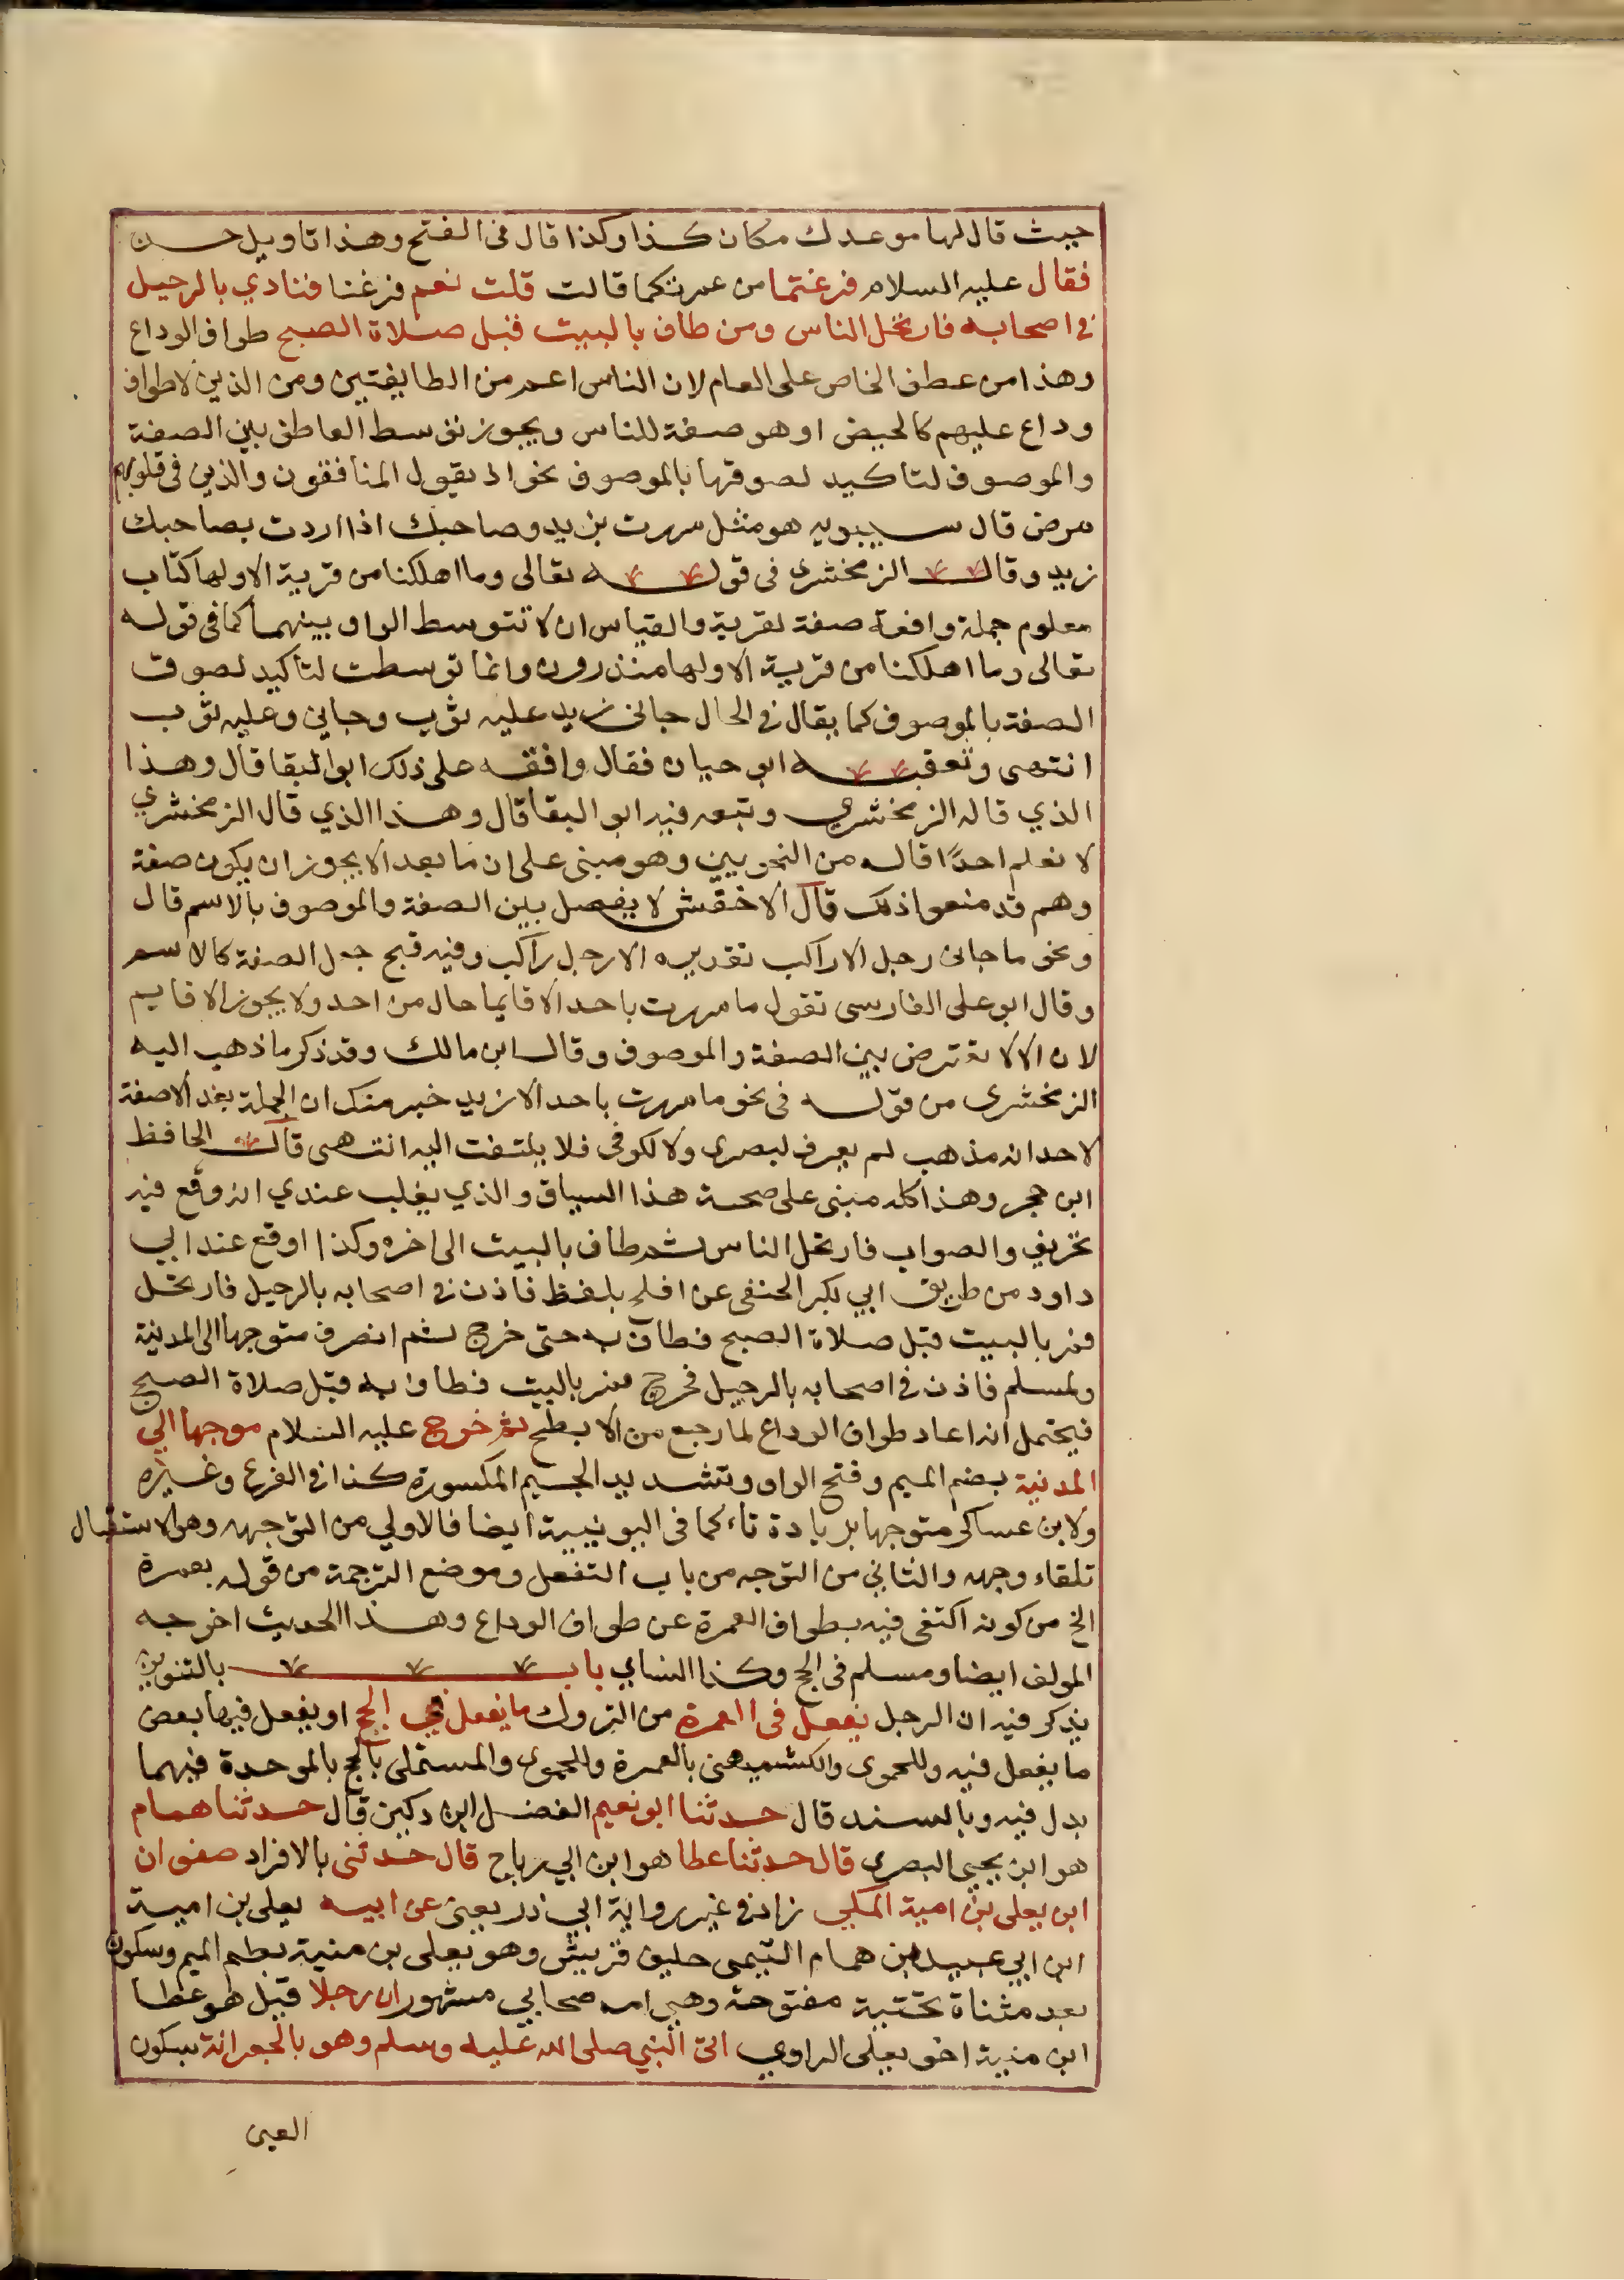 حيث قال لها موعدك مكان كذا وكذا قال في الفتح وهذا تاويل حسن
فقال عليه السلام فرغتما من عمرتكما قالت قلت نعم فرغنا فنادي بالرحيل
في اصحابه فارتحل الناس ومن طاف بالبيت قبل صلاة الصبح طواف الوداع
وهذا من عطف الخاص على العام لان الناس اعم من الطايفتين ومن الذين لا طواف
وداع عليهم كالحيض او هو صفة للناس ويجوز توسط العاطف بين الصفة
والموصوف لتاكيد لصوقها بالموصوف نحو اذ يقول المنافقون والذين في قلوبهم
مرض قال سيبويه هو مثل مررت بزيد وصاحبك اذا اردت بصاحبك
زيد وقال الزمخشري في قوله تعالى وما اهلكنا من قرية الا ولها كتاب
معلوم جملة واقعة صفة لقرية والقياس ان لا تتوسط الواو بينهما كما في قوله
تعالى وما اهلكنا من قرية الا ولها منذرون وانما توسطت لتاكيد لصوق
الصفة بالموصوف كما يقال في الحال جاني زيد عليه ثوب وجاني وعليه ثوب
انتهى وتعقبه ابو حيان فقال وافقه على ذلك ابو البقا قال وهذا
الذي قاله الزمخشري وتبعه فيه ابو البقا قال وهذا الذي قال الزمخشري
لا نعلم احدًا قاله من النحويين وهو مبنى على ان ما بعد الا يجوز ان يكون صفة
وهم قد منعوا ذلك قال الاخفش لا يفصل بين الصفة والموصوف بالاسم قال
ونحو ما جاني رجل الا راكب تقديره الا رجل راكب وفيه قبح جعل الصفة كالاسم
وقال ابو على الفارسى تقول ما مررت باحد الا قايما حال من احد ولا يجوز الا قايم
لان الا لا تعترض بين الصفة والموصوف وقال ابن مالك وقد ذكر ما ذهب اليه
الزمخشرى من قوله في نحو ما مررت باحد الا زيد خير منك ان الجملة بعد الا صفة
لاحد انه مذهب لم يعرف لبصرى ولا لكوفى فلا يلتفت اليه انتهى قال الحافظ
ابن حجر وهذا كله مبنى على صحة هذا السياق والذي يغلب عندي انه وقع فيه
تحريف والصواب فارتحل الناس ثم طاف بالبيت الى اخره وكذا اوقع عند ابي
داود من طريق ابي بكر الحنفى عن افلح بلفظ فاذن في اصحابه بالرحيل فارتحل
فمر بالبيت قبل صلاة الصبح فطاف به حتى خرج ثم انصرف متوجها الى المدينة
ولمسلم فاذن في اصحابه بالرحيل فخرج فمر بالبيت فطاف به قبل صلاة الصبح
فيحتمل انه اعاد طواف الوداع لما رجع من الابطح ثم خرج عليه السلام موجها الي
المدينة بضم الميم وفتح الواو وتشديد الجيم المكسورة كذا في الفرع وغيره
ولابن عساكر متوجها بزيادة تاء كما في اليونينية ايضا فالاولي من التوجه وهو الاستقبال
تلقاء وجهه والثاني من التوجه من باب التفعل وموضع الترجمة من قوله بعمرة
الخ من كونه اكتفى فيه بطواف العمرة عن طواف الوداع وهذا الحديث اخرجه
المولف ايضا ومسلم في الحج وكذا النساي باب بالتنوين
يذكر فيه ان الرجل يفعل في العمرة من التروك ما يفعل في الحج او يفعل فيها بعض
ما يفعل فيه وللحموى والكشميهنى بالعمرة وللحموى والمستملى بالحج بالموحدة فيهما
بدل فيه وبالسند قال حدثنا ابو نعيم الفضل ابن دكين قال حدثنا همام
هو ابن يحيى البصرى قال حدثنا عطا هو ابن ابي رباح قال حدثنى بالافراد صفوان
ابن يعلى بن امية المكي زاد في غير رواية ابي ذر يعنى عن ابيه يعلى بن امية
ابن ابي عبيد ابن همام التيمى حليف قريش وهو يعلى بن منية بضم الميم وسكون
بعد مثناة تحتية مفتوحة وهي امه صحابي مشهور ان رجلا قيل هو عطا
ابن منية اخو يعلى الراوي اتى النبي صلى الله عليه وسلم وهو بالجعرانة بسكون
العين